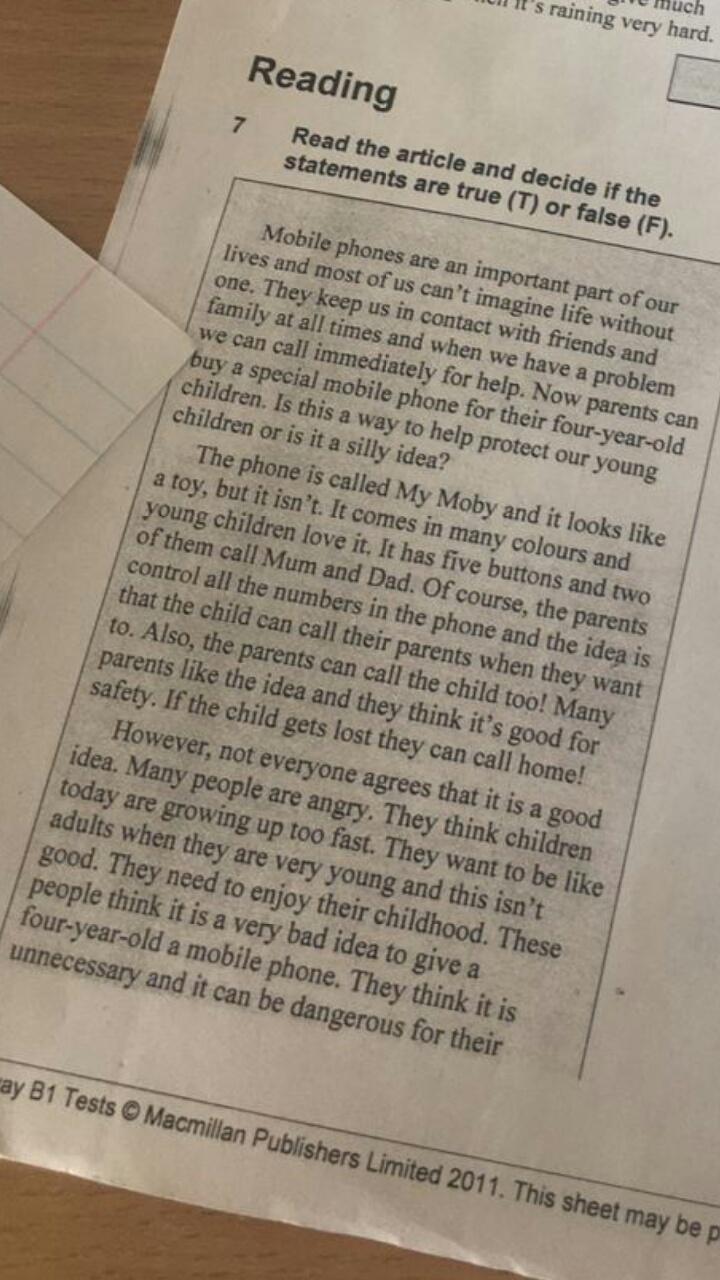 give much
it's raining very hard.
Reading
7 Read the article and decide if the
statements are true (T) or false (F).
Mobile phones are an important part of our
lives and most of us can't imagine life without
one. They keep us in contact with friends and
family at all times and when we have a problem
we can call immediately for help. Now parents can
buy a special mobile phone for their four-year-old
children. Is this a way to help protect our young
children or is it a silly idea?
The phone is called My Moby and it looks like
a toy, but it isn't. It comes in many colours and
young children love it. It has five buttons and two
of them call Mum and Dad. Of course, the parents
control all the numbers in the phone and the idea is
that the child can call their parents when they want
to. Also, the parents can call the child too! Many
parents like the idea and they think it's good for
safety. If the child gets lost they can call home!
However, not everyone agrees that it is a good
idea. Many people are angry. They think children
today are growing up too fast. They want to be like
adults when they are very young and this isn't
good. They need to enjoy their childhood. These
people think it is a very bad idea to give a
four-year-old a mobile phone. They think it is
unnecessary and it can be dangerous for their
ay B1 Tests © Macmillan Publishers Limited 2011. This sheet may be p